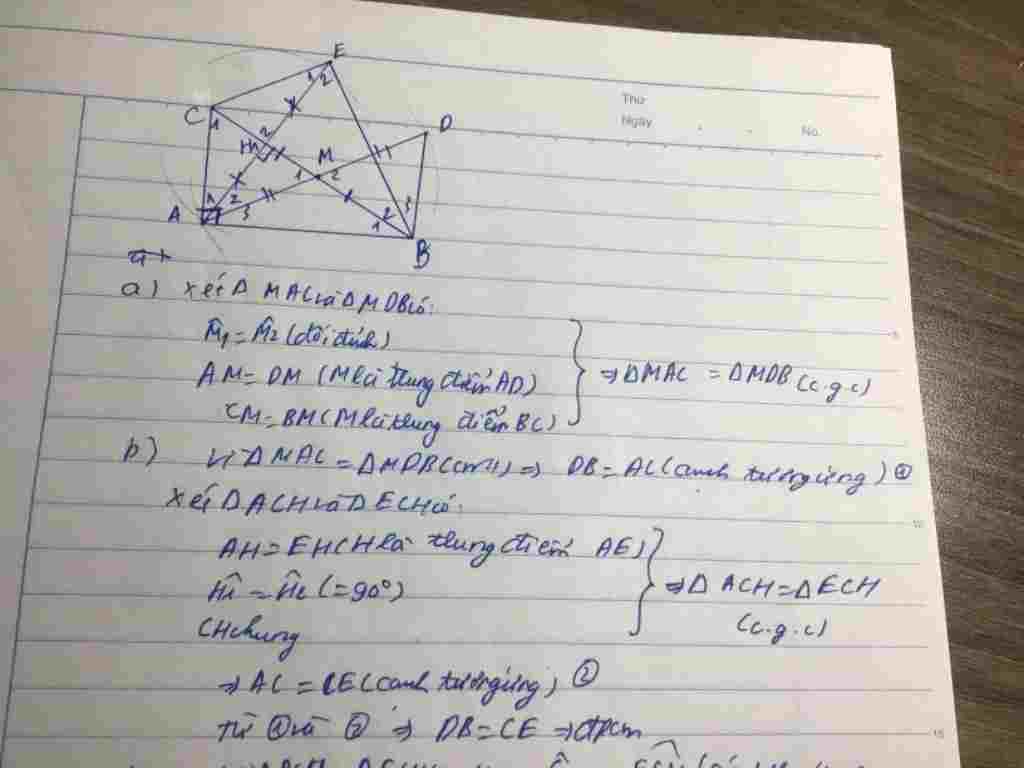 Thứ
Ngày
No.
E
C
D
M
H
A
B
a) Xét Δ MAC và Δ MDB có:
M̂1 = M̂2 (đối đỉnh)
AM = DM (M là trung điểm AD)
CM = BM (M là trung điểm BC)
⇒ Δ MAC = Δ MDB (c.g.c)
b) Vì Δ MAC = Δ MDB (cmt) ⇒ DB = AC (cạnh tương ứng) ①
Xét Δ ACH và Δ ECH có:
AH = EH (H là trung điểm AE)
Ĥ1 = Ĥ2 (= 90°)
CH chung
⇒ Δ ACH = Δ ECH
(c.g.c)
⇒ AC = CE (cạnh tương ứng) ②
Từ ① và ② ⇒ DB = CE ⇒ đpcm